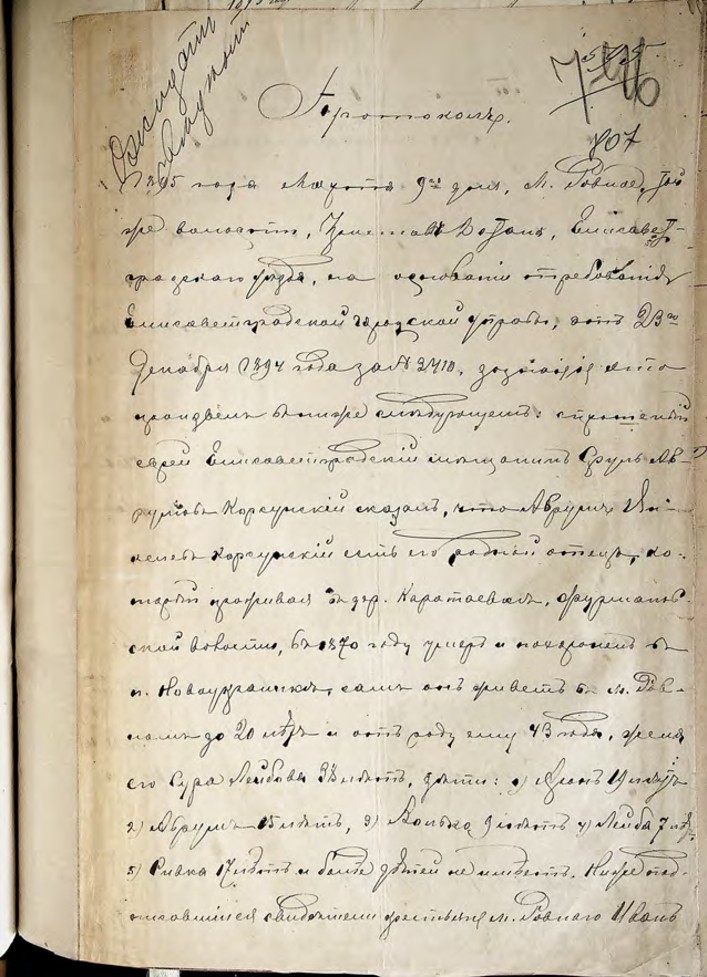 Протоколъ.
807
1895 года Марта 9го дня, М. Ровное, той
же волости, Елисавет-
градскаго уѣзда, на основаніи требованія
Елисаветградской городской управы, отъ 23го
Декабря 1894 года за № 2410, дознаніе
произвелъ въ ниже слѣдующемъ: спрошенный
еврей Елисаветградскій мѣщанинъ Сруль Ав-
румовъ Корсунскій сказалъ, что Аврумъ
Корсунскій есть его родной отецъ, ко-
торый проживая въ дер. Каратаевкѣ,
ской волости, въ 1870 году умеръ и похороненъ въ
п. Новоукраинкѣ, самъ онъ живетъ въ м. Ров-
номъ до 20 лѣтъ и отъ роду ему 43 года, жена
его Сура Лейбова 38 лѣтъ, дѣти: 1) 19 лѣтъ
2) Аврумъ 15 лѣтъ, 3) 9 лѣтъ 4) Лейба 7 лѣтъ
5) Ривка 17 лѣтъ и болѣе дѣтей не имѣетъ. Ниже под-
писавшіеся свидѣтели крестьяне м. Ровнаго Иванъ